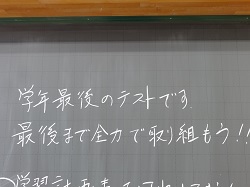 学年最後のテストです
最後まで全力で取り組もう!!
学習計画表